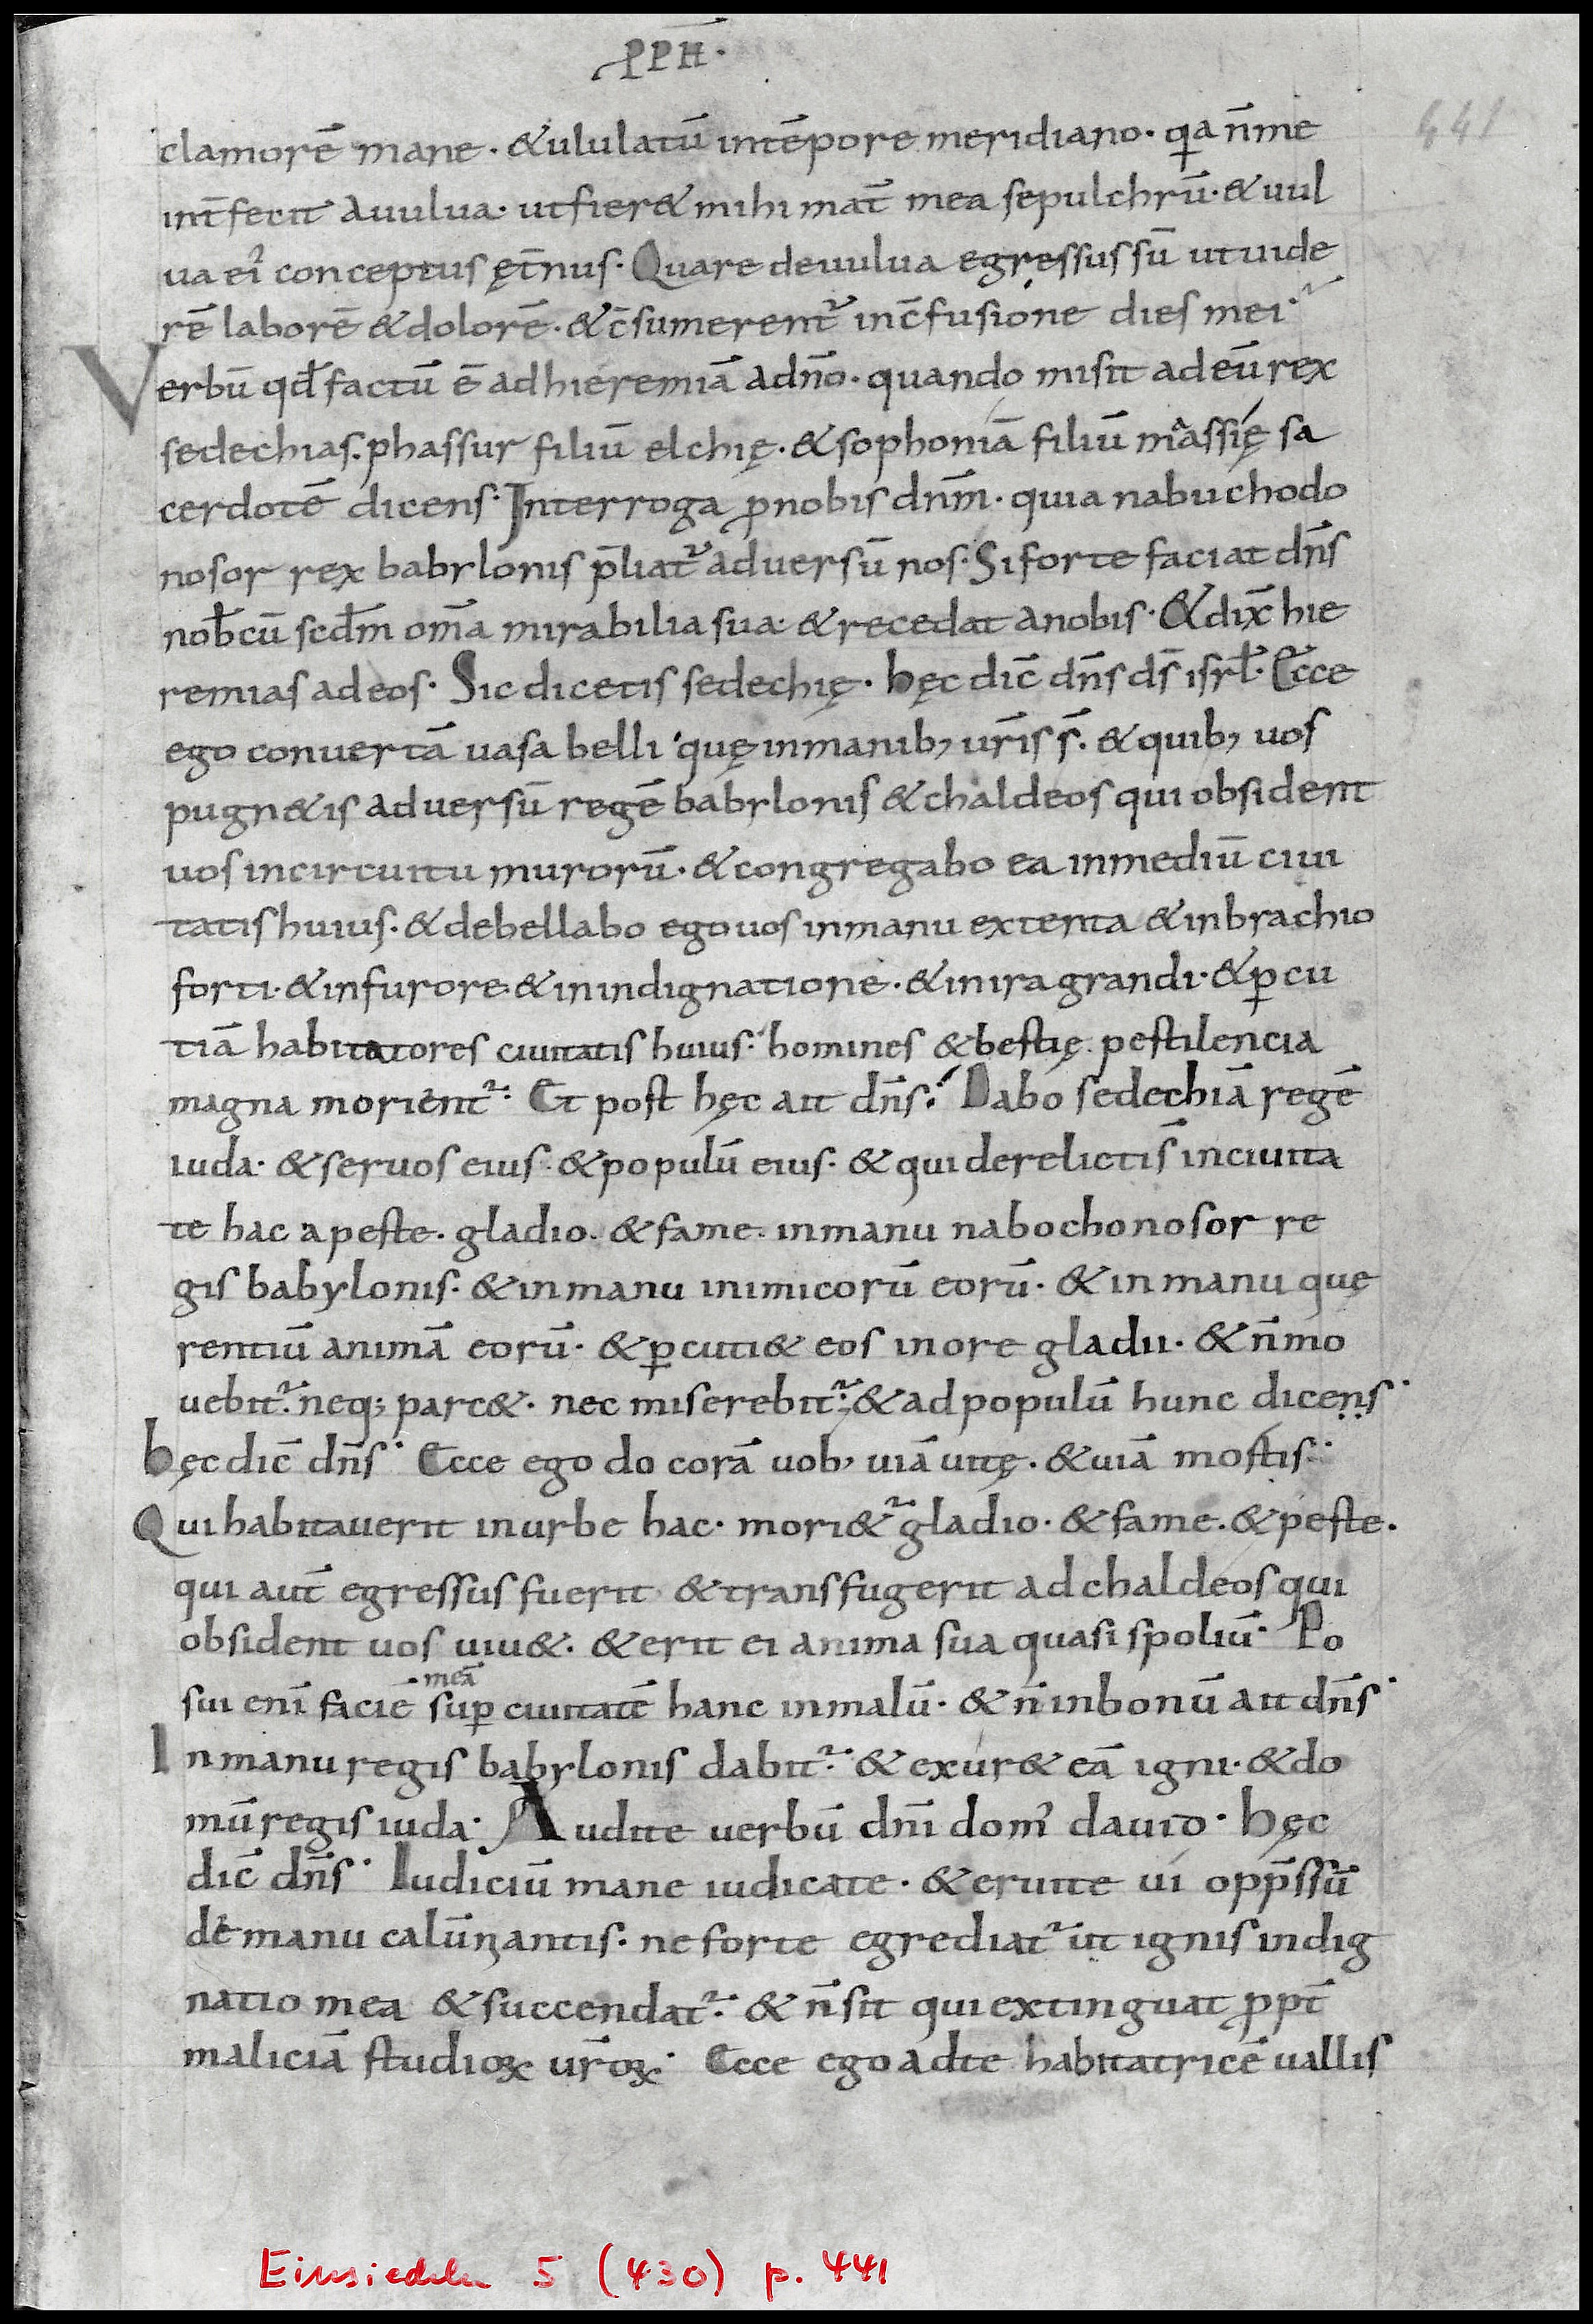 PPH̅.
441
clamorē mane. & ululatū intēpore meridiano. qa n̄ me
int̄fecit a uulua. ut fier& mihi mat̄ mea sepulchrū. & uul
ua ei᾿ conceptus ęt̄nus. Quare de uulua egressus sū ut uide
rē laborē & dolorē. & c̄sumerent᷑ in c̄fusione dies mei.
Verbū qđ factū ē ad hieremiā a dn̄o. quando misit ad eū rex
sedechias. phassur filiū elchię. & sophoniā filiū maassię sa
cerdotē dicens. Interroga ꝓ nobis dn̄m. quia nabuchodo
nosor rex babylonis p̄liat᷑ aduersū nos. Si forte faciat dn̄s
nob̄cū scd̄m om̄a mirabilia sua. & recedat a nobis. & dix̄ hie
remias ad eos. Sic dicetis sedechię. Hęc dic̄ dn̄s ds̄ isrl̄. Ecce
ego conuertā uasa belli quę in manib; ur̄is s̄. & quib; uos
pugn&is aduersū regē babylonis & chaldeos qui obsident
uos in circuitu murorū. & congregabo ea in mediū ciui
tatis huius. & debellabo ego uos in manu extenta & in brachio
forti. & in furore & in indignatione. & in ira grandi. & ꝑcu
tiā habitatores ciuitatis huius. homines & bestię. pestilencia
magna morient᷑. Et post hęc ait dn̄s. Dabo sedechiā regē
iuda. & seruos eius. & populū eius. & qui derelicti s̄ in ciuita
te hac a peste. gladio. & fame. in manu nabochonosor re
gis babylonis. & in manu inimicorū eorū. & in manu quę
rentiū animā eorū. & ꝑcuti& eos in ore gladii. & n̄ mo
uebit᷑. neq; parc&. nec miserebit᷑. & ad populū hunc dicens.
Hęc dic̄ dn̄s. Ecce ego do corā uob, uiā uitę. & uiā mortis.
Qui habitauerit in urbe hac. mori&᷑ gladio. & fame. & peste.
qui aut̄ egressus fuerit & transfugerit ad chaldeos qui
obsident uos uiu&. & erit ei anima sua quasi spoliū. Po
sui eni̅ faciē meā suꝑ ciuitatē hanc in malū. & n̄ in bonū ait dn̄s.
In manu regis babylonis dabit᷑. & exur& eā igni. & do
mū regis iuda. Audite uerbū dn̄i dom᾿ dauid. Hęc
dic̄ dn̄s. Iudiciū mane iudicate. & eruite ui opp̄ssū
de manu calūnantis. ne forte egrediat᷑ ut ignis indig
natio mea & succendat᷑. & n̄ sit qui extinguat ꝓpt̄
maliciā studioꝝ ur̄oꝝ. Ecce ego ad te habitatricē uallis
Einsiedeln 5 (430) p. 441